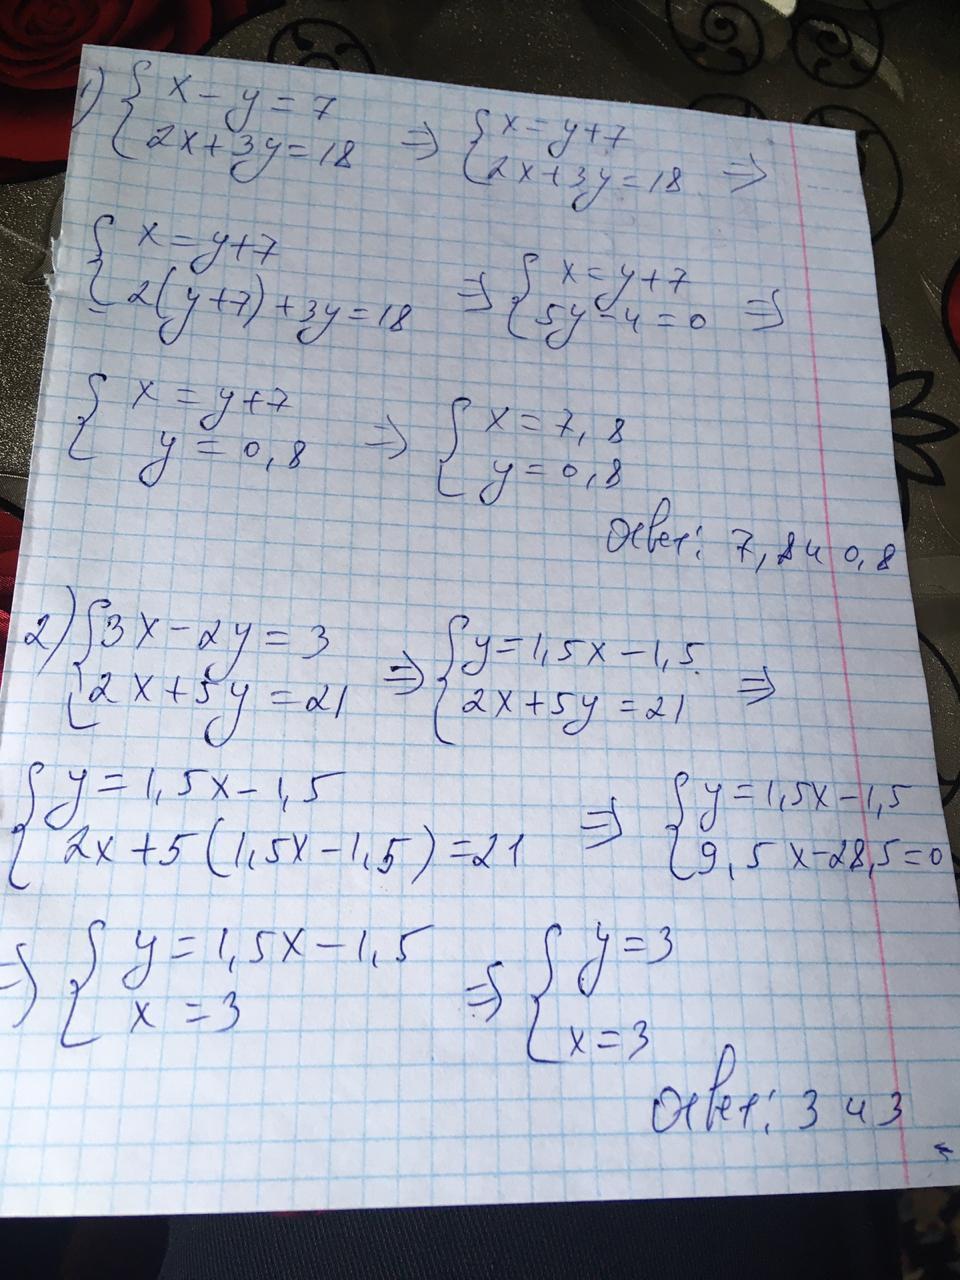 1) { x - y = 7
2x + 3y = 18 => { x = y + 7
2x + 3y = 18 =>
{ x = y + 7
2(y + 7) + 3y = 18 => { x = y + 7
5y - 4 = 0 =>
{ x = y + 7
y = 0,8 => { x = 7,8
y = 0,8
Ответ: 7,8 и 0,8
2) { 3x - 2y = 3
2x + 5y = 21 => { y = 1,5x - 1,5
2x + 5y = 21 =>
{ y = 1,5x - 1,5
2x + 5(1,5x - 1,5) = 21 => { y = 1,5x - 1,5
9,5x - 28,5 = 0
=> { y = 1,5x - 1,5
x = 3 => { y = 3
x = 3
Ответ: 3 и 3